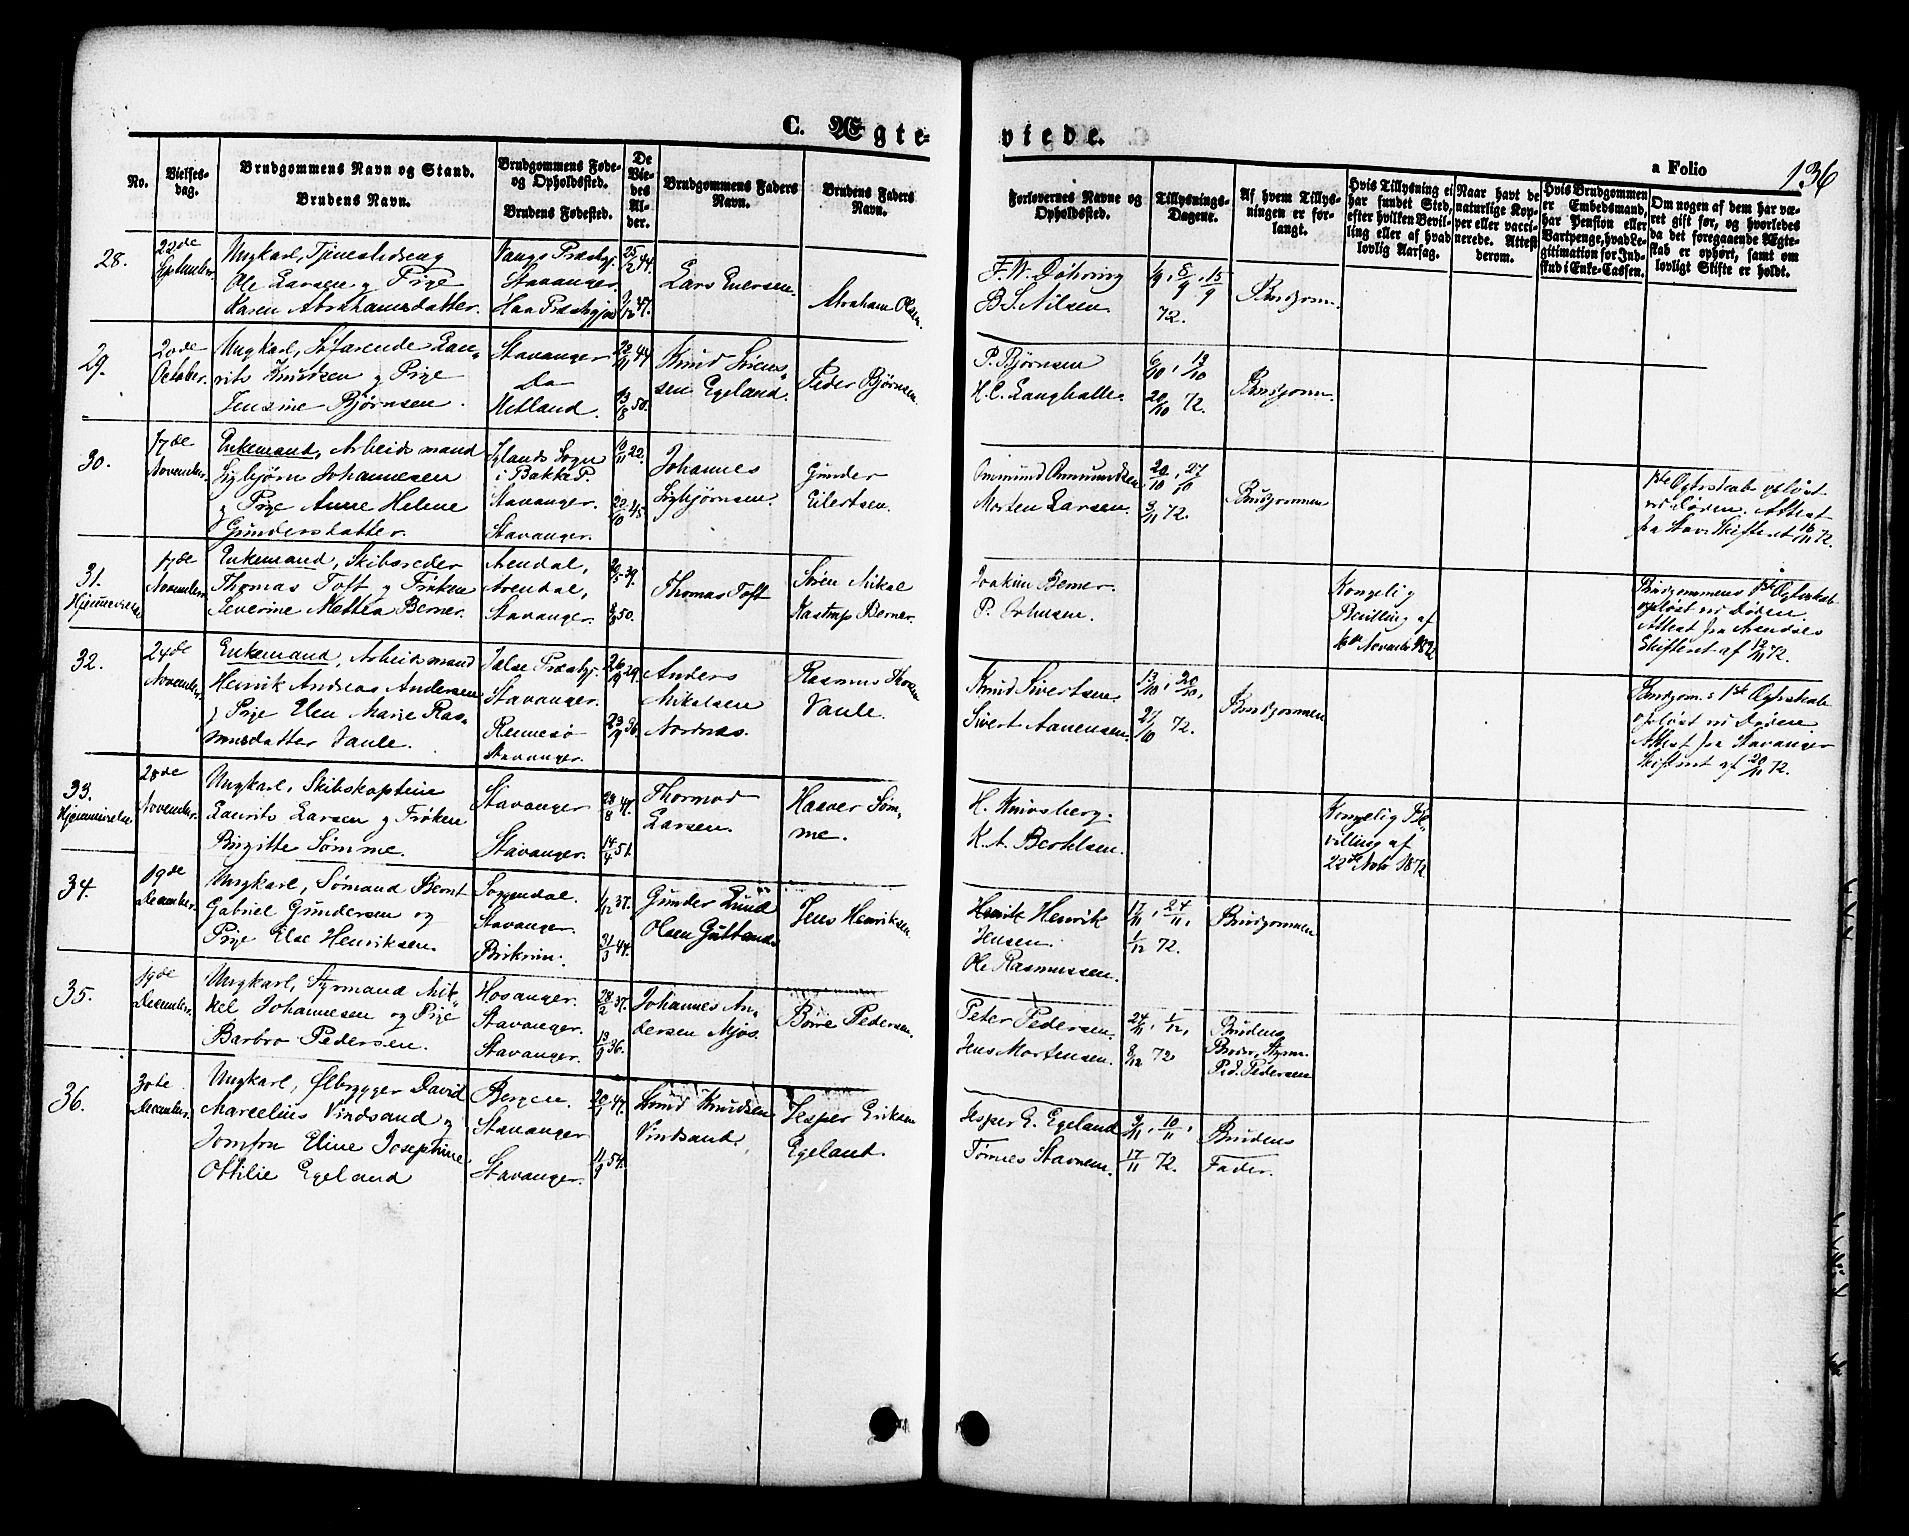 C. Ægte-
viede.
a Folio 136
No.
Vielses-
dag.
Brudgommens Navn og Stand.
Brudens Navn.
Brudgommens Føde-
og Opholdssted.
Brudens Fødested.
De
Vie-
des
Al-
der.
Brudgommens Faders
Navn.
Brudens Faders
Navn.
Forlovernes Navne og
Opholdssted.
Tillysnings-
Dagene.
Af hvem Tillys-
ningen er for-
langt.
Hvis Tillysning ei
har fundet Sted,
efter hvilken Bevil-
ling eller af hvad
lovlig Aarsag.
Naar havt de
naturlige Kop-
per eller vacci-
nerede. Attest
derom.
Hvis Brudgommen
er Embedsmand,
har Pension eller
Vartpenge, hvad Le-
gitimation for Ind-
skud i Enke-Cassen.
Om nogen af dem har væ-
ret gift før, og hvorledes
da det foregaaende Ægte-
skab er ophørt, samt om
lovligt Skifte er holdt.
28.
22de
September.
Ungkarl, Tjenestedreng
Ole Larsen og Pige
Karen Abrahamsdatter.
Vangs Præstgj.
Stavanger.
Haa Præstegjæld
25/2 44.
2/12 47.
Lars Evensen.
Abraham Olsen.
F. W. Döhring
B. S. Nilsen
1/9, 8/9, 15/9
72.
Brudgom.
29.
20de
October.
Ungkarl, Søfarende Lau-
rits Knudsen og Pige
Jensine Bjørnsen.
Stavanger
Do
Hetland.
22/11 44
13/8 50.
Knud Sørens-
sen Egeland.
Peder Bjørnsen.
P. Bjørnsen
H. C. Langhalle.
6/10, 13/10
20/10 72.
Brudgom.
30.
17de
November.
Enkemand, Arbeidsmand
Sigbjørn Johannesen
og Pige Anne Helene
Gundersdatter.
Islands Sogn
i Bakke P.
Stavanger.
Stavanger.
10/11 22.
22/10 45.
Johannes
Sigbjørnsen.
Gunder
Eilertsen.
Ommund Ommundsen
Morten Larsen.
20/10, 27/10
3/11 72.
Brudgommen
1ste Ægteskab opløst
ved Døden. Attest
fra Stav. Skifteret 16/11 72.
31.
Hjemmevielse
17de
November.
Enkemand, Skibsreder
Thomas Toft og Frøken
Severine Mettea Berner.
Arendal,
Arendal,
Stavanger.
20/5 39.
8/8 50.
Thomas Toft
Søren Mikal
Kastrup Berner.
Joakim Berner.
P.
Kongelig
Bevilling af
6te November 1872
Brudgommens 1ste Ægteskab
opløst ved Døden.
Attest fra Arendals
Skifteret af 12/11 72.
32.
24de
November.
Enkemand, Arbeidsmand
Henrik Andreas Andersen
og Pige Elen Marie Ras-
musdatter Vaule.
Jælse Præstgj.
Stavanger.
Rennesø
Stavanger.
26/9 29.
23/9 36.
Anders
Mikalsen
Nordnæs.
Rasmus Thoen
Vaule.
Knud Sivertsen.
Sivert Aanensen.
13/10, 20/10,
27/10 72.
Brudgommen
Brudgom.s 1ste Ægteskab
opløst ved Døden
Attest fra Stavanger
Skifteret af 20/11 72.
33.
Hjemmevielse
28de
November.
Ungkarl, Skibskaptein
Laurits Larsen og Frøken
Birgitte Sømme.
Stavanger
Stavanger.
28/8 47.
14/4 51.
Thormod
Larsen.
Haaver Søm-
me.
H. Knivsberg.
K. A. Berthelsen.
Kongelig Be-
villing af
22de Novbr 1872
34.
19de
December.
Ungkarl, Sømand Bernt
Gabriel Gundersen og
Pige Else Henriksen.
Soggendal.
Stavanger.
Birkrim.
1/12 37.
31/3 44.
Gunder Lund
Olsen
Jens Henriksen
Henrik
Jensen.
Ole Rasmussen.
17/11, 24/11,
1/12 72.
Brudgommen
35.
19de
December.
Ungkarl, Styrmand Mik-
kel Johannesen og Pige
Barbro Pedersen.
Hosanger.
Stavanger.
Stavanger.
28/2 37.
13/9 36.
Johannes An-
dersen Mjøs.
Børre Pedersen.
Peter Pedersen.
Jens Mortensen.
24/11, 1/12,
8/12 72
Brudens
Broder, Styrm.
P. d. Pedersen
36.
30te
December.
Ungkarl, Ølbrygger David
Marcelius Vindsand og
Jomfru Eline Josephine
Ottilie Egeland
Bergen.
Stavanger
Stavanger.
20/1 47.
11/9 54.
Knud Knudsen
Vindsand.
Jesper Eriksen
Egeland.
Jesper E. Egeland
Tønnes Stavnem.
3/11, 10/11,
17/11 72.
Brudens
Fader.